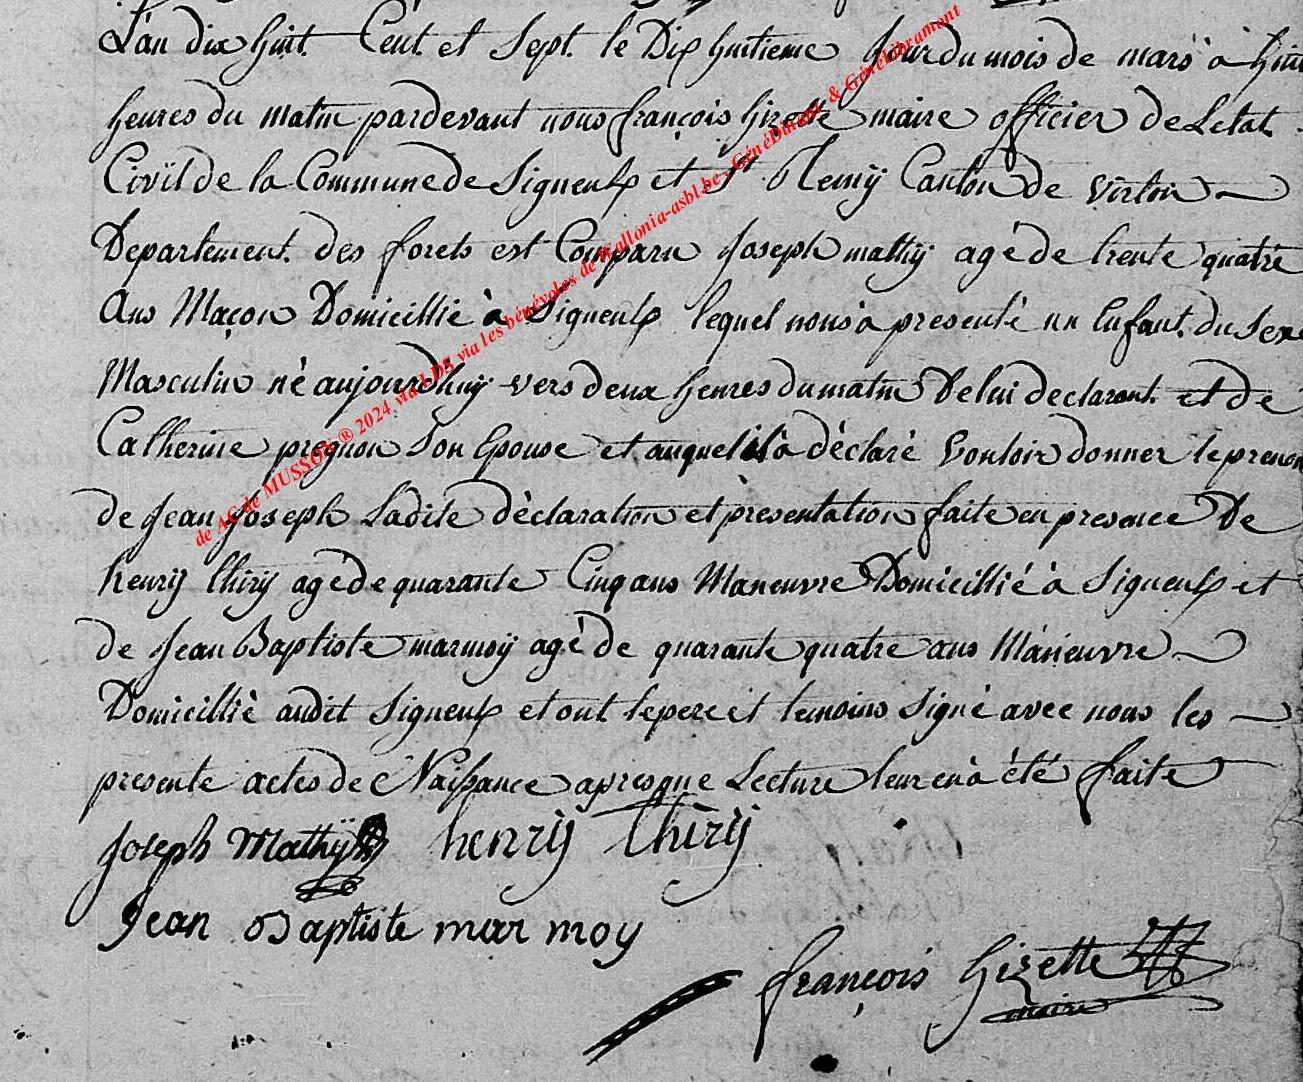 L'an dix huit Cent et Sept le Dix huitieme Jour du mois de mars à huit
heures du matin pardevant nous françois hizette maire officier De Letat
Civïl de la Commune de Signeulx et St Remÿ Canton de Virton
Departement des forets est Comparu Joseph mathÿ agé de trente quatre
Ans Maçon Domicillié à Signeulx lequel nous à presenté un Enfant du Sexe
Masculin né aujourd'huÿ vers deux heures du matin De lui declarant et de
Catherine prognon Son Epouse et auquel il à déclaré Vouloir donner le prenom
de Jean Joseph Ladite déclaration et présentation faite en presence De
henrÿ thirÿ agé de quarante Cinq ans Maneuvre Domicillié à Signeulx et
de Jean Baptiste marmoÿ agé De quarante quatre ans Maneuvre
Domicillié audit Signeulx et ont le pere et temoins Signé avec nous les
presente actes de Naissance apres que Lecture leur en à été faite
Joseph Mathÿ henrÿ thirÿ
Jean Baptiste mar moy
françois hizette
maire
de AC de MUSSON ® 2024 via LDS via les bénévoles de Wallonia-asbl.be - GénéDinant & GénéLibramont